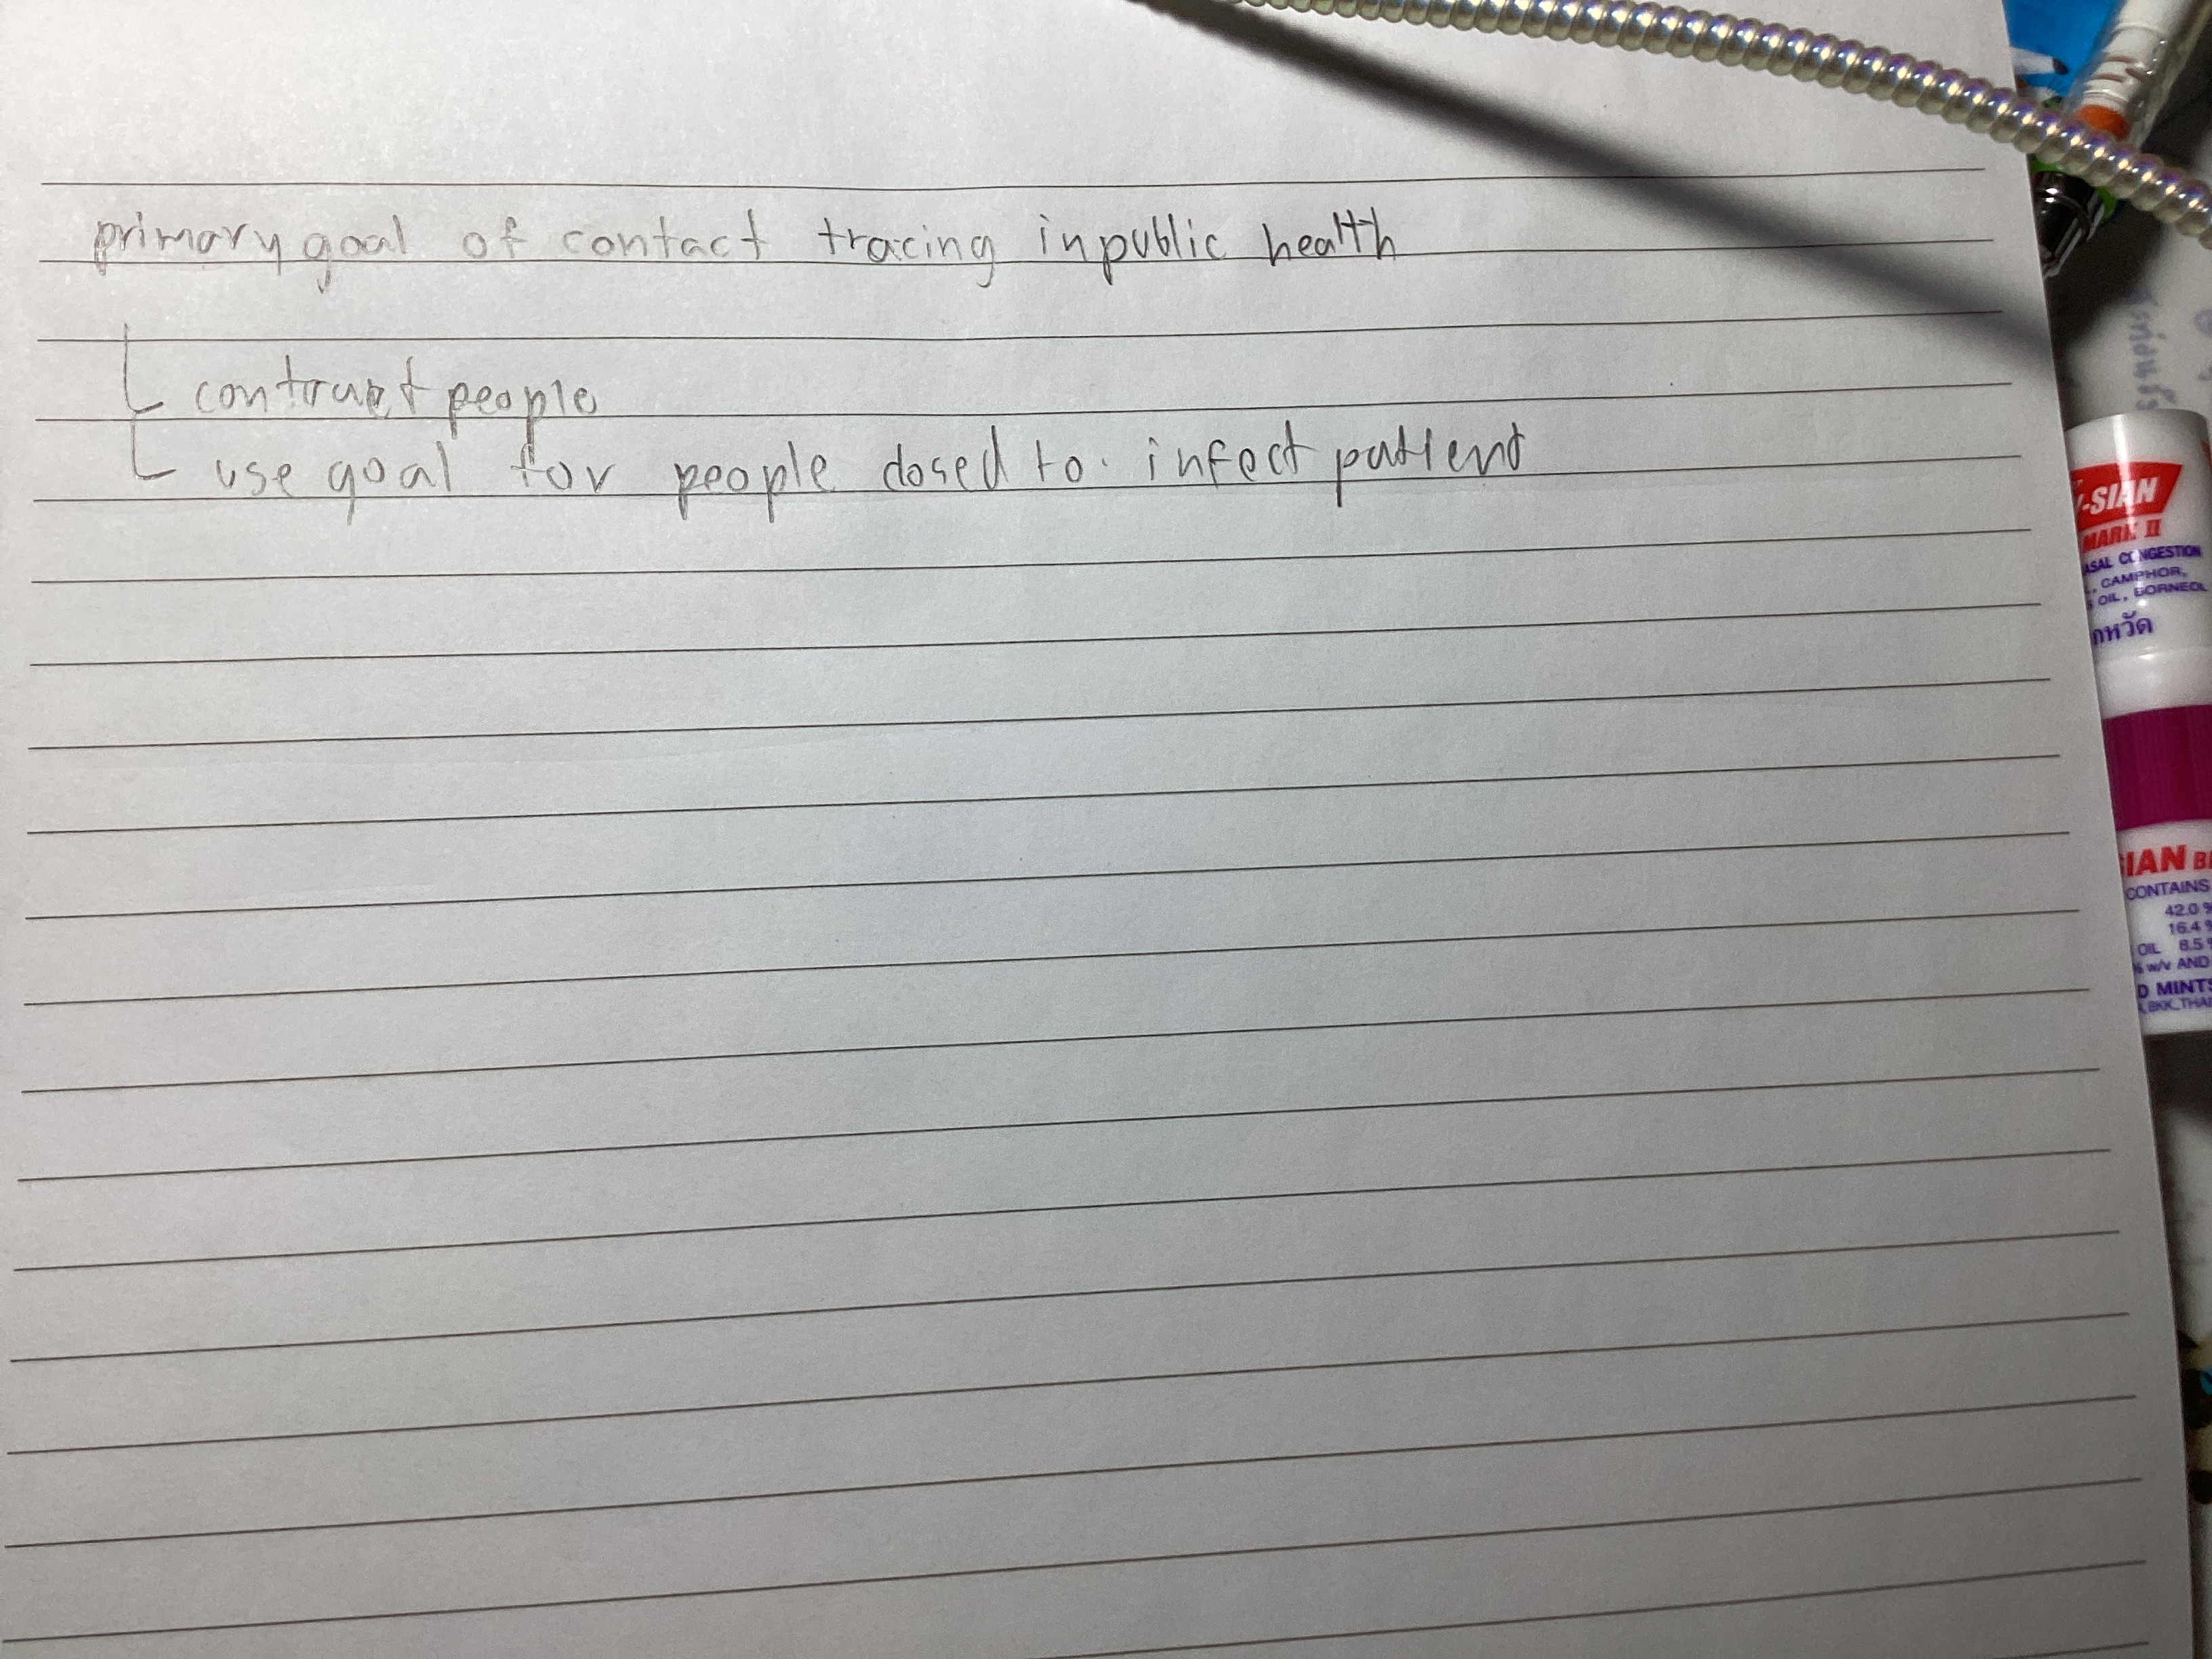 primary goal of contact tracing in public health
contract people
use goal for people closed to. infect patient
-SIAN
MARK II
ASAL CONGESTION
, CAMPHOR,
OIL, BORNEOL
กหวัด
IAN
CONTAINS
42.0 %
16.4 %
OIL 8.5
% w/v AND
D MINTS
BKK., THA